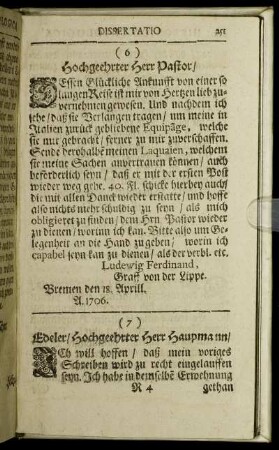 DISSERTATIO 251
(6)
Hochgeehrter Herr Pastor/
DEssen Glückliche Ankunfft von einer so
langen Reise ist mir von Hertzen lieb zu
vernehmen gewesen. Und nachdem ich
sehe/ daß sie Verlangen tragen/ um meine in
Italien zurück gebliebene Equipage, welche
sie nur gebracht/ ferner zu mir zuverschaffen.
Sende derohalbē meinen Laquaien, welchem
sie meine Sachen anvertrauen können/ auch
beförderlich seyn/ daß er mit der ersten Post
wieder weg gehe. 40. Fl. schicke hierbey auch/
die mit allen Danck wieder erstatte/ und hoffe
also nichts mehr schuldig zu seyn/ als mich
obligieret zu finden/ dem Hrn. Pastor wieder
zu dienen/ worinn ich kan. Bitte also um Ge-
legenheit an die Hand zu geben/ worin ich
capabel seyn kan zu dienen/ als der verbl. etc.
Ludewig Ferdinand,
Graff von der Lippe.
Bremen den 18. Aprill.
A. 1706.
(7)
Edeler/ Hochgeehrter Herr Haupmann/
ICh will hoffen/ daß mein voriges
Schreiben wird zu recht eingelauffen
seyn. Ich habe in demselbē Erwehnung
R 4 gethan